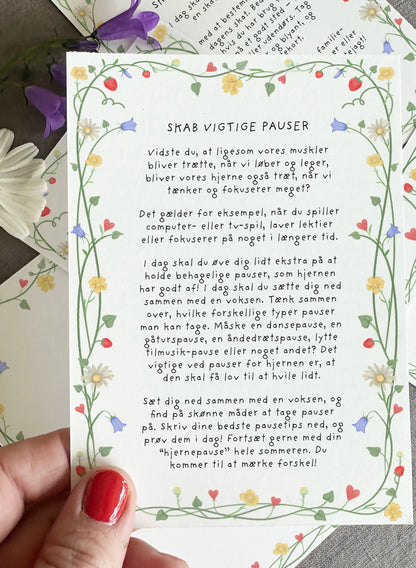 dag sk
en ska
med at bestemm
dagens skat. Bed
hvis du har brug
et godt sted -
ler udendørs. Tag
og blyant, og
ekort.
familie-
er eller
tlag!
SKAB VIGTIGE PAUSER
Vidste du, at ligesom vores muskler
bliver trætte, når vi løber og leger,
bliver vores hjerne også træt, når vi
tænker og fokuserer meget?
Det gælder for eksempel, når du spiller
computer- eller tv-spil, laver lektier
eller fokuserer på noget i længere tid.
I dag skal du øve dig lidt ekstra på at
holde behagelige pauser, som hjernen
har godt af! I dag skal du sætte dig ned
sammen med en voksen. Tænk sammen
over, hvilke forskellige typer pauser
man kan tage. Måske en dansepause, en
gåturspause, en åndedrætspause, lytte
tilmusik-pause eller noget andet? Det
vigtige ved pauser for hjernen er, at
den skal få lov til at hvile lidt.
Sæt dig ned sammen med en voksen, og
find på skønne måder at tage pauser
på. Skriv dine bedste pausetips ned, og
prøv dem i dag! Fortsæt gerne med din
"hjernepause" hele sommeren. Du
kommer til at mærke forskel!